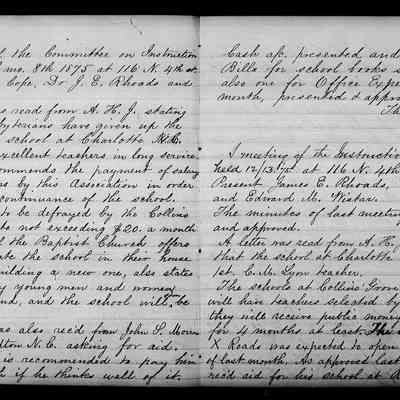 the Committee on Instruction
mo. 8th 1875 at 116 N. 4th st.
Cope, Dr J. E. Rhoads and
read from A. H. J. stating
byterians have given up the
school at Charlotte N.C.
excellent teachers in long service
ommends the payment of salary
by this Association in order
continuance of the school.
to be defrayed by the Collins
to not exceeding $20. a month
the Baptist Church offers
ate the school in their house
uilding a new one, also states
y young men and women
nd, and the school will be
as also rec'd from John S. Moren
lton N.C. asking for aid.
is recommended to pay him
if he thinks well of it.
Cash a/c. presented and
Bills for school books
also one for Office Expe
month, presented & appro
Th
A meeting of the Instructio
held 12/13.75 at 116 N. 4th
Present James E. Rhoads,
and Edward M. Wistar.
The minutes of last meeting
and approved.
A letter was read from A. H.
that the school at Charlotte
1st. C. M. Lyon teacher.
The schools at Collins' Grove
will have teachers selected by
they will receive public money
for 4 months at least. This
X Roads was expected to open
of last month. As approved last
rec'd aid for his school at